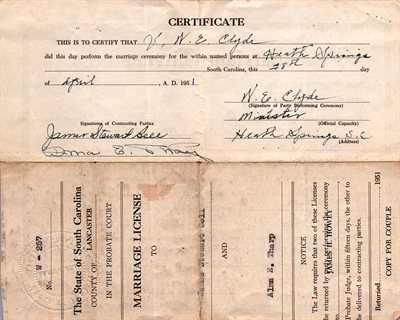 CERTIFICATE
THIS IS TO CERTIFY THAT I, W. E. Clyde
did this day perform the marriage ceremony for the within named persons at Heath Springs
South Carolina, this 28th day
of April, A. D. 1951
W. E. Clyde
(Signature of Party Performing Ceremony)
Minister
(Official Capacity)
Heath Springs S.C.
(Address)
Signatures of Contracting Parties
James Stewart
No. W - 257
The State of South Carolina
COUNTY OF LANCASTER
IN THE PROBATE COURT
MARRIAGE LICENSE
TO
Stewart
AND
Alma E. Tharp
NOTICE
The Law requires that two of these Licenses
be returned by the ceremony
JAMES H HOWEY
Probate Judge, within fifteen days, the other to
be delivered to contracting parties.
Returned , 1951
COPY FOR COUPLE